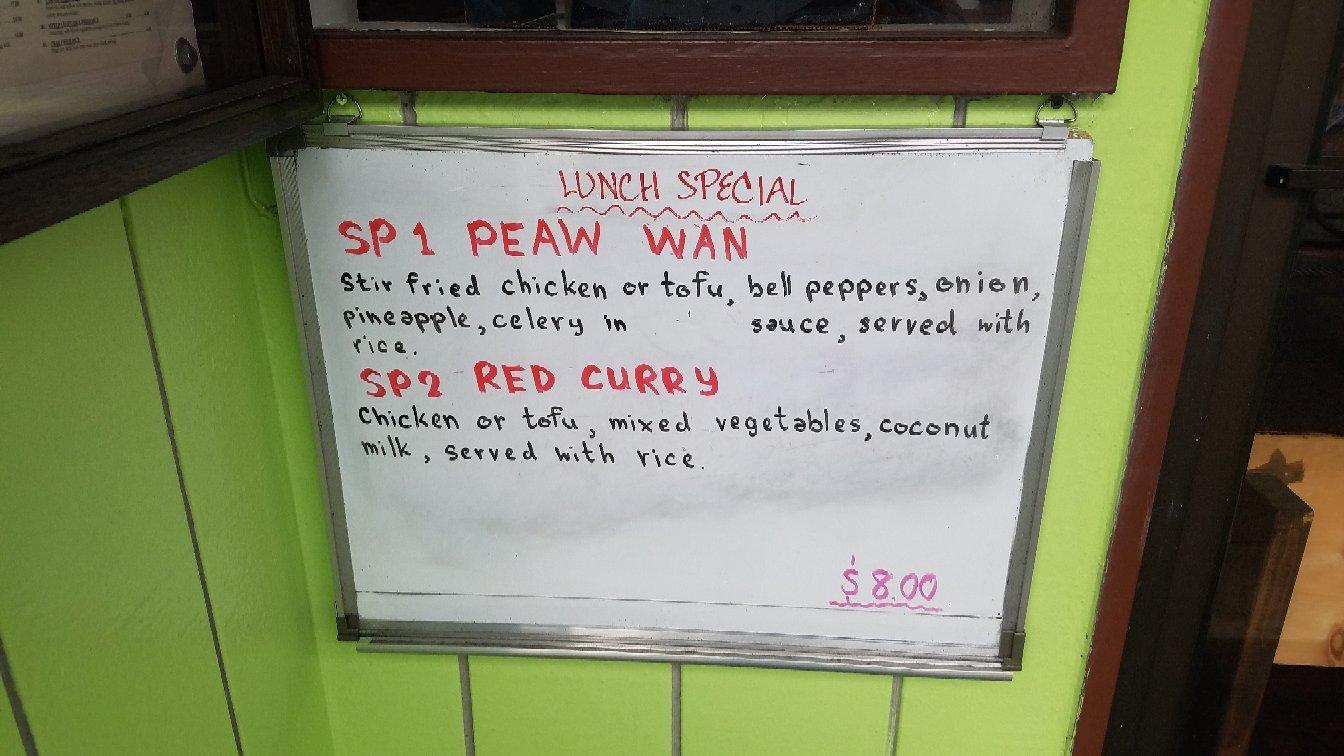 LUNCH SPECIAL
SP 1 PEAW WAN
Stir fried chicken or tofu, bell peppers, onion,
pineapple, celery in sauce, served with
rice.
SP2 RED CURRY
Chicken or tofu, mixed vegetables, coconut
milk, served with rice.
$ 8.00